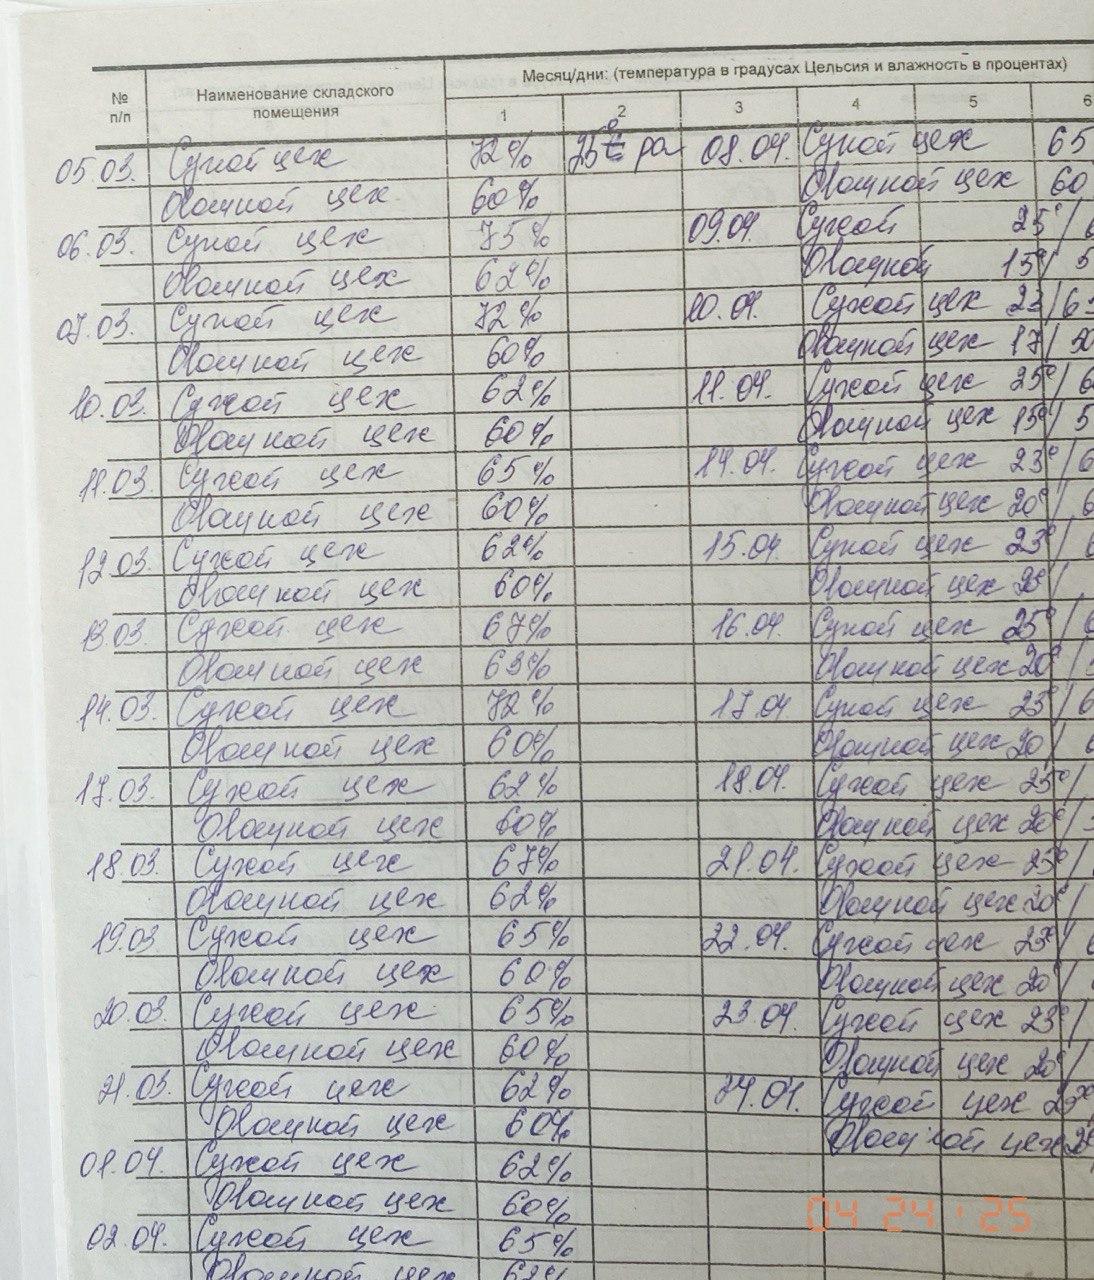 № п/п Наименование складского помещения Месяц/дни: (температура в градусах Цельсия и влажность в процентах)
1 2 3 4 5 6
05.03. Сухой цех 72% 25° 08.04. Сухой цех 65
Овощной цех 60% Овощной цех 60
06.03. Сухой цех 75% 09.04. Сухой 25° /
Овощной цех 62% Овощной 15° / 5
07.03. Сухой цех 72% 10.04. Сухой цех 23 / 6
Овощной цех 60% Овощной цех 17 / 50
10.03. Сухой цех 62% 11.04. Сухой цех 25° / 6
Овощной цех 60% Овощной цех 15° / 5
11.03. Сухой цех 65% 14.04. Сухой цех 23° / 6
Овощной цех 60% Овощной цех 20° / 6
12.03. Сухой цех 62% 15.04 Сухой цех 23° / 6
Овощной цех 60% Овощной цех 20° /
13.03. Сухой цех 67% 16.04. Сухой цех 25° / 6
Овощной цех 63% Овощной цех 20° /
14.03. Сухой цех 72% 17.04 Сухой цех 23° / 6
Овощной цех 60% Овощной цех 20 /
17.03. Сухой цех 62% 18.04. Сухой цех 23° /
Овощной цех 60% Овощной цех 20° /
18.03. Сухой цех 67% 21.04. Сухой цех 23° /
Овощной цех 62% Овощной цех 20° /
19.03 Сухой цех 65% 22.04. Сухой цех 23° /
Овощной цех 60% Овощной цех 20° /
20.03. Сухой цех 65% 23.04. Сухой цех 23° /
Овощной цех 60% Овощной цех 20° /
21.03. Сухой цех 62% 24.04. Сухой цех
Овощной цех 60% Овощной цех
01.04. Сухой цех 62%
Овощной цех 60%
02.04. Сухой цех 65%
Овощной цех 62%
04 24 '25